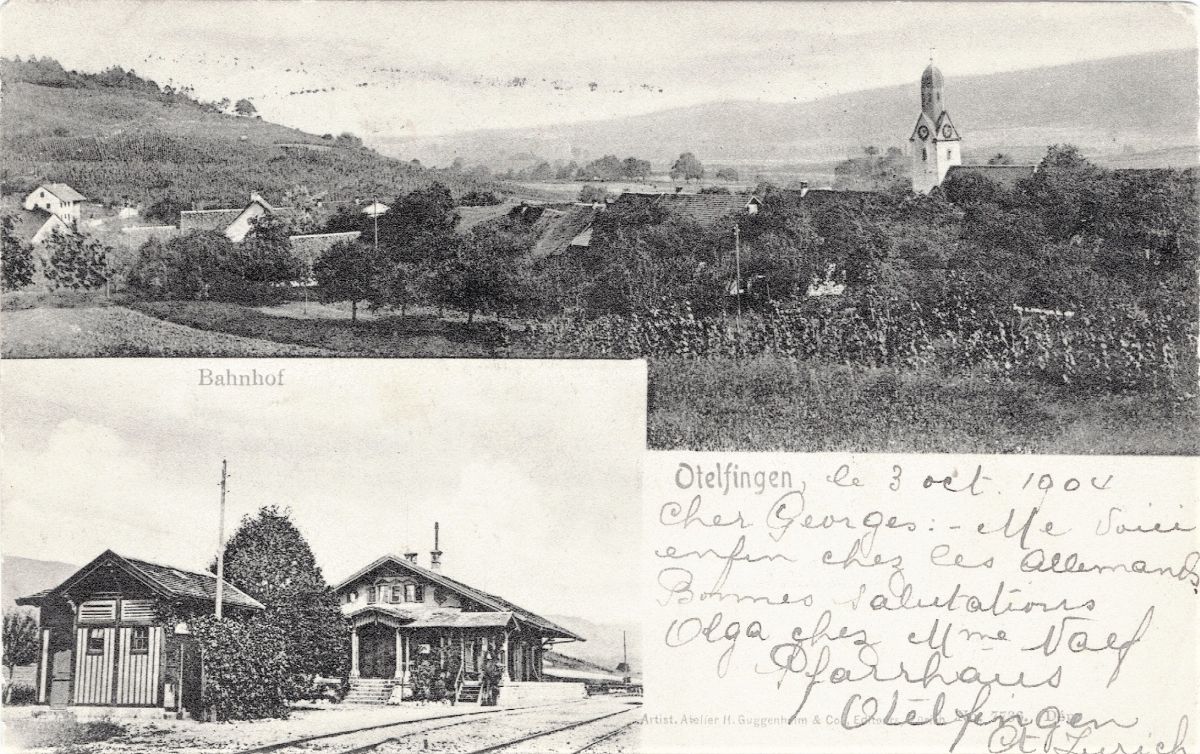 Bahnhof
Otelfingen, le 3 oct. 1904
Cher Georges: - Me voici
enfin chez les Allemands
Bonnes salutations
Olga chez Mme Naef
Pfarrhaus
Otelfingen
Ct. Zurich
Artist. Atelier H. Guggenheim & Co., Editeurs